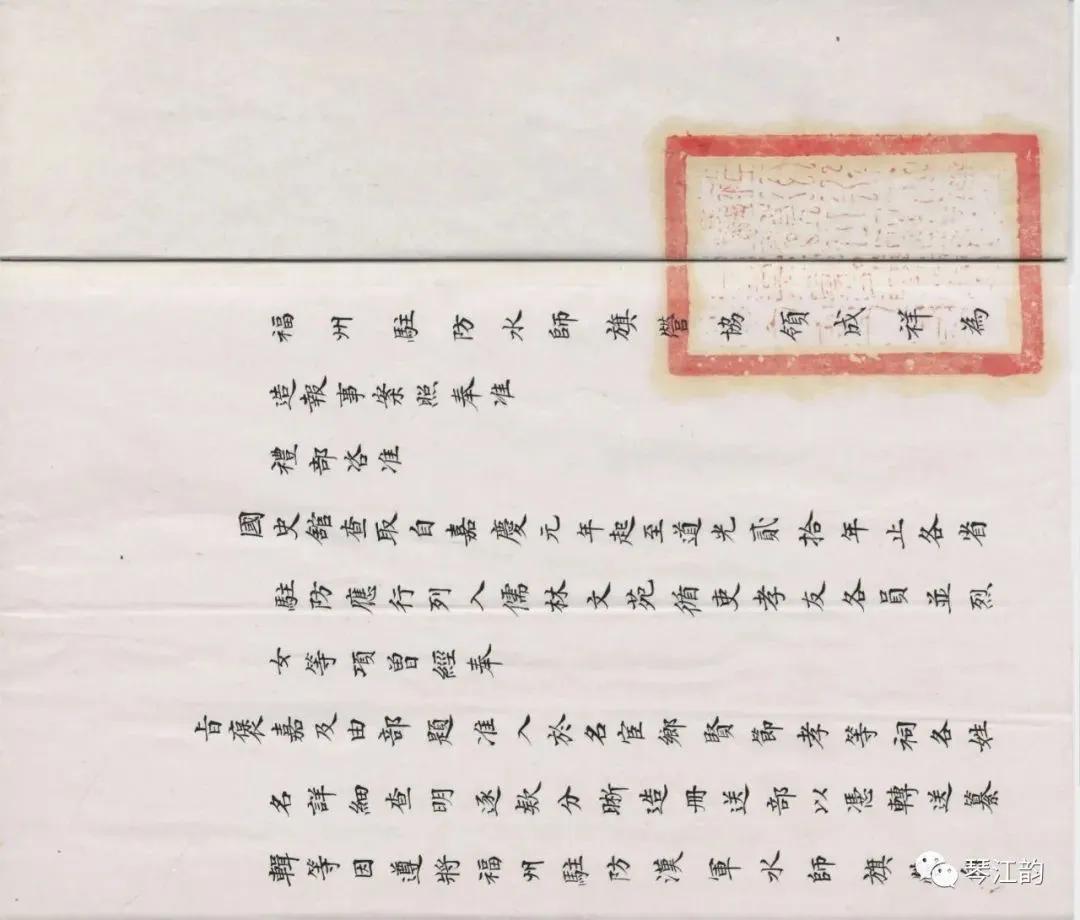 福州駐防水師旗營協領成祥為
造報事案照奉准
禮部咨准
國史舘查取自嘉慶元年起至道光貳拾年止各省
駐防應行列入儒林文苑循吏孝友各員並烈
女等項曾經奉
旨褒嘉及由部題准入於名宦鄉賢節孝等祠各姓
名詳細查明逐欵分晰造冊送部以憑轉送纂
輯等因遵將福州駐防漢軍水師旗
琴江韵